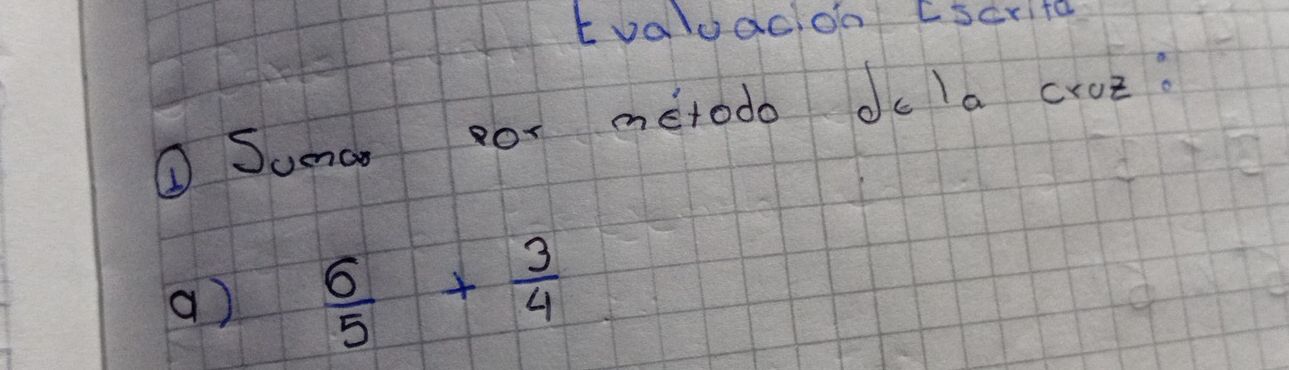 Evaluación Escrita
① Sumas por método de la cruz:
a) 6/5 + 3/4